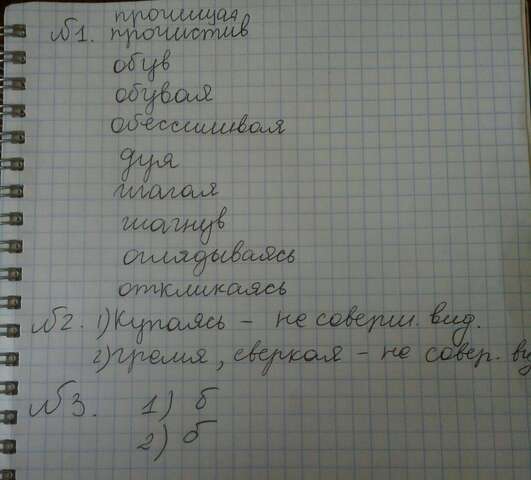 прочищая
№1. прочистив
обув
обувая
обессиливая
дуя
шагая
шагнув
оглядываясь
откликаясь
№2. 1) Купаясь - не соверш. вид.
2) гремя, сверкая - не совер. ви
№3. 1) б
2) б